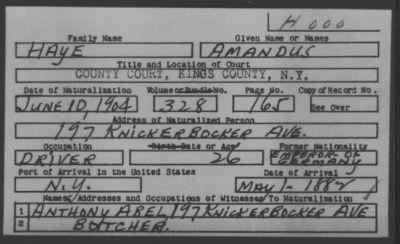 H 000
Family Name Given Name or Names
HAYE AMANDUS
Title and Location of Court
COUNTY COURT, KINGS COUNTY, N.Y.
Date of Naturalization Volume or Bundle No. Page No. Copy of Record No.
JUNE 10, 1904 328 165 See Over
Address of Naturalized Person
197 KNICKERBOCKER AVE.
Occupation Birth Date or Age Former Nationality
DRIVER 26 EMPEROR OF GERMANY
Port of Arrival in the United States Date of Arrival
N.Y. MAY 1- 1882
Names, Addresses and Occupations of Witnesses To Naturalization
1 ANTHONY ABEL, 197 KNICKERBOCKER AVE
2 BUTCHER.